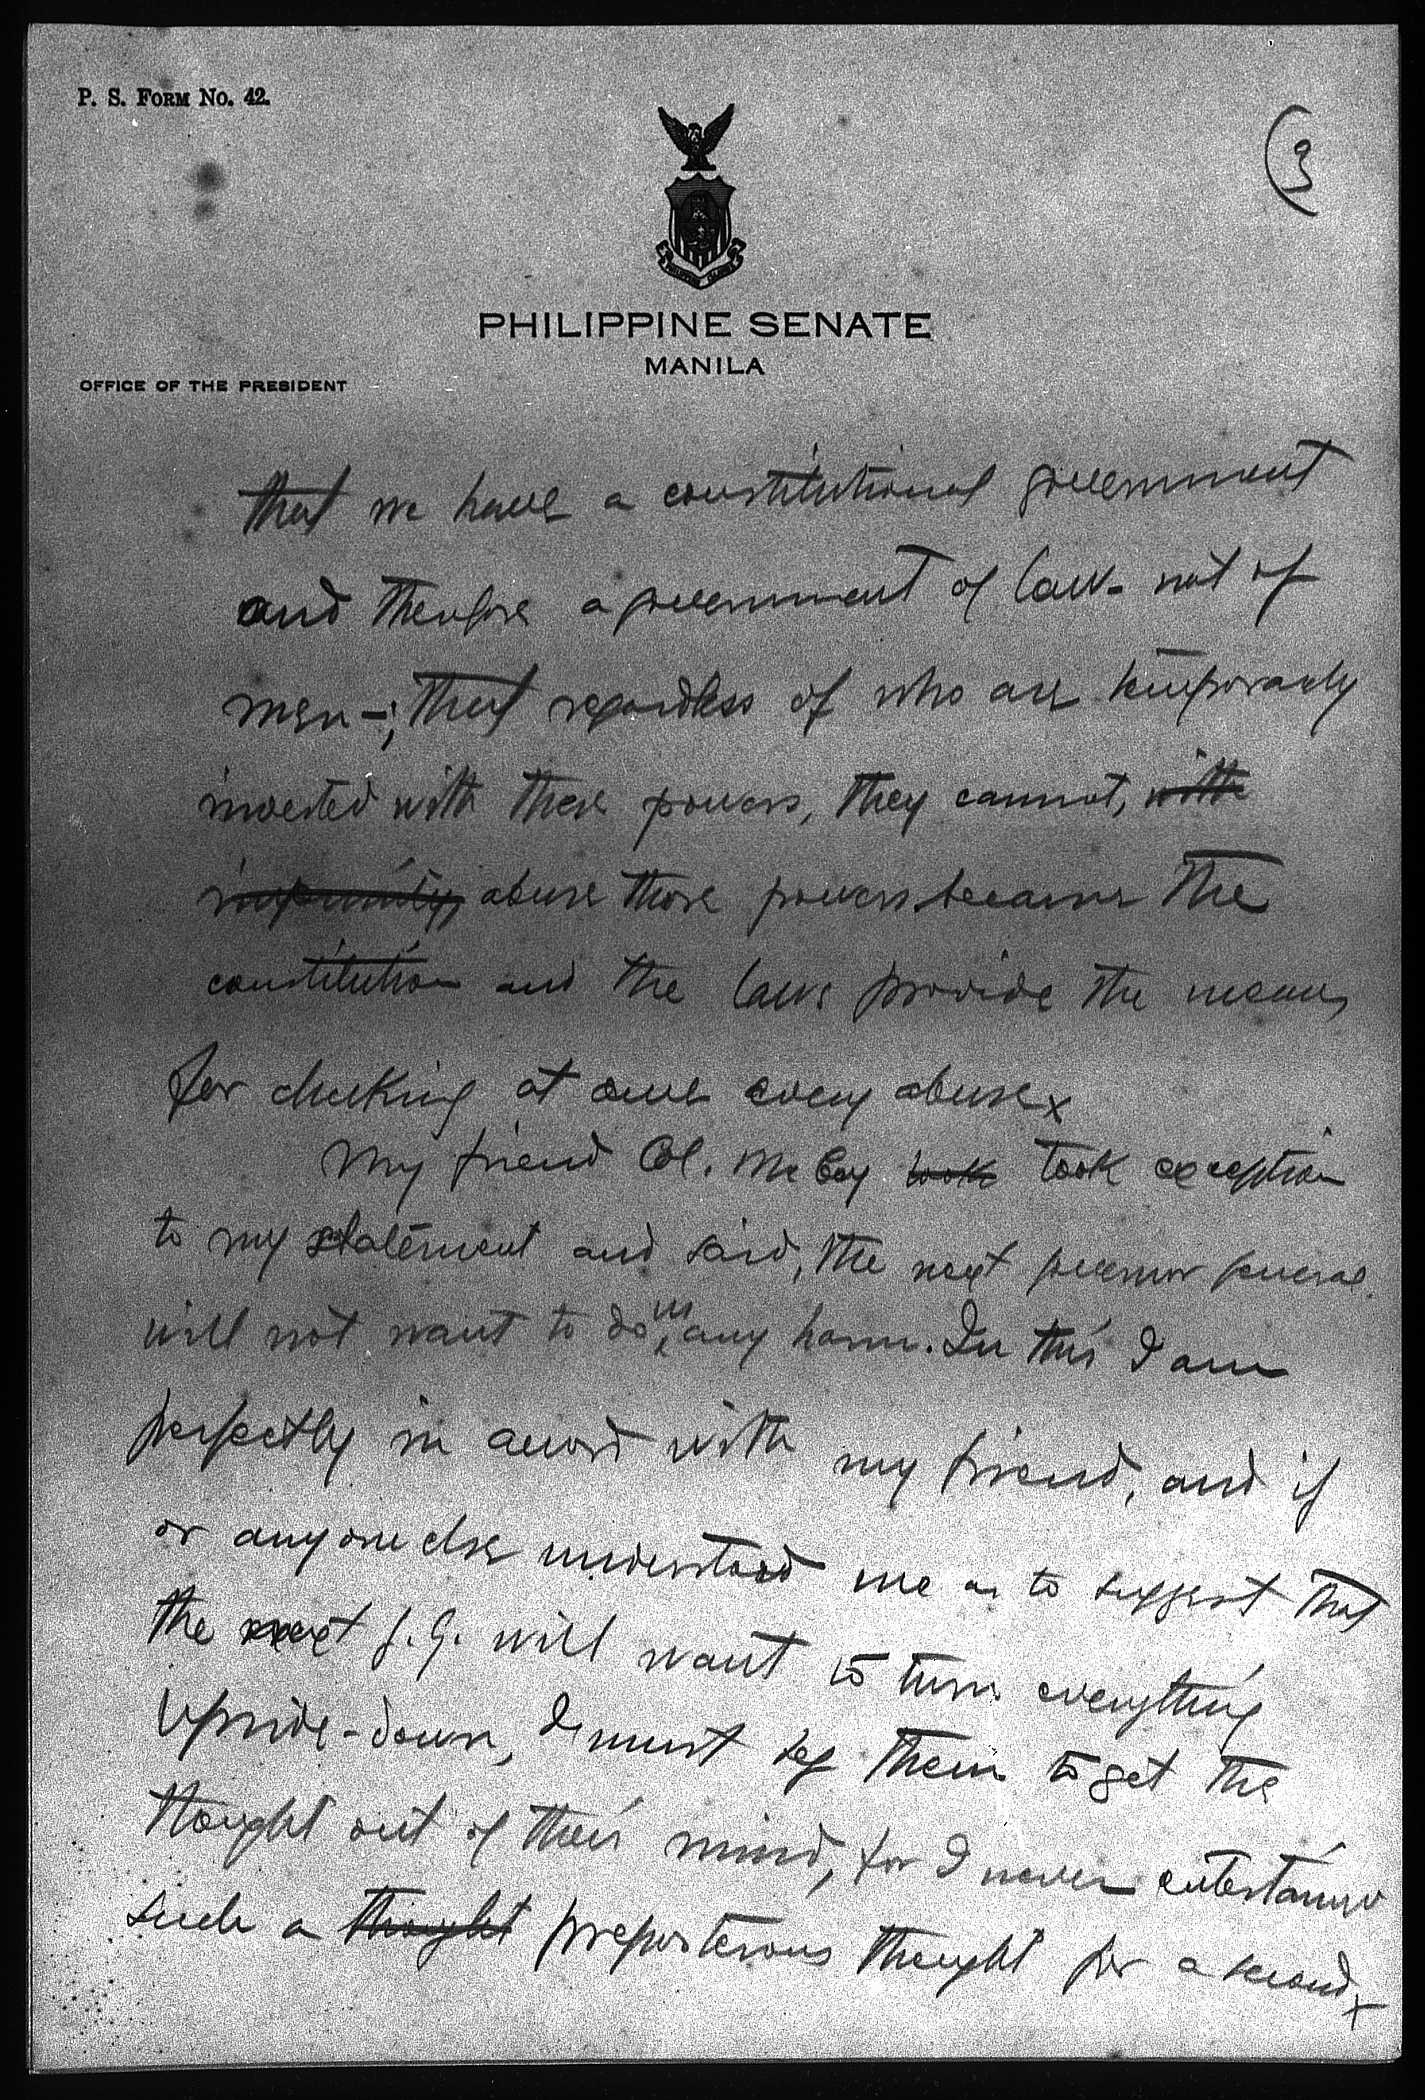 P. S. FORM No. 42.
(3
PHILIPPINE SENATE
MANILA
OFFICE OF THE PRESIDENT
that we have a constitutional government
and therefore a government of law - not of
men -; that regardless of who are temporarily
invested with these powers, they cannot, with
impunity, abuse those powers because the
constitution and the laws provide the means
for checking at once every abuse x
My friend Col. McCoy took took exception
to my statement and said, the next governor general
will not want to do us any harm. In this I am
perfectly in accord with my friend, and if
or anyone else understood me as to suggest that
the next g. G. will want to turn everything
upside-down, I must beg them to get the
thought out of their mind, for I never entertained
such a thought preposterous thought for a second x